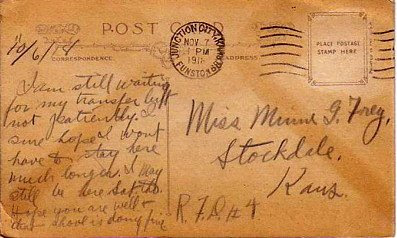 POST CARD
10/6/18
CORRESPONDENCE
ADDRESS
JUNCTION CITY, KANS.
NOV 7
1 PM
1918
FUNSTON BR.
PLACE POSTAGE
STAMP HERE
I am still waiting
for my transfer but
not patiently. I
sure hope I wont
have to stay here
much longer. I may
still be here Sat. tho
Hope you are well &
that Shool is doing fine
Miss Minnie G. Frey,
Stockdale,
Kans.
R.F.D. #4